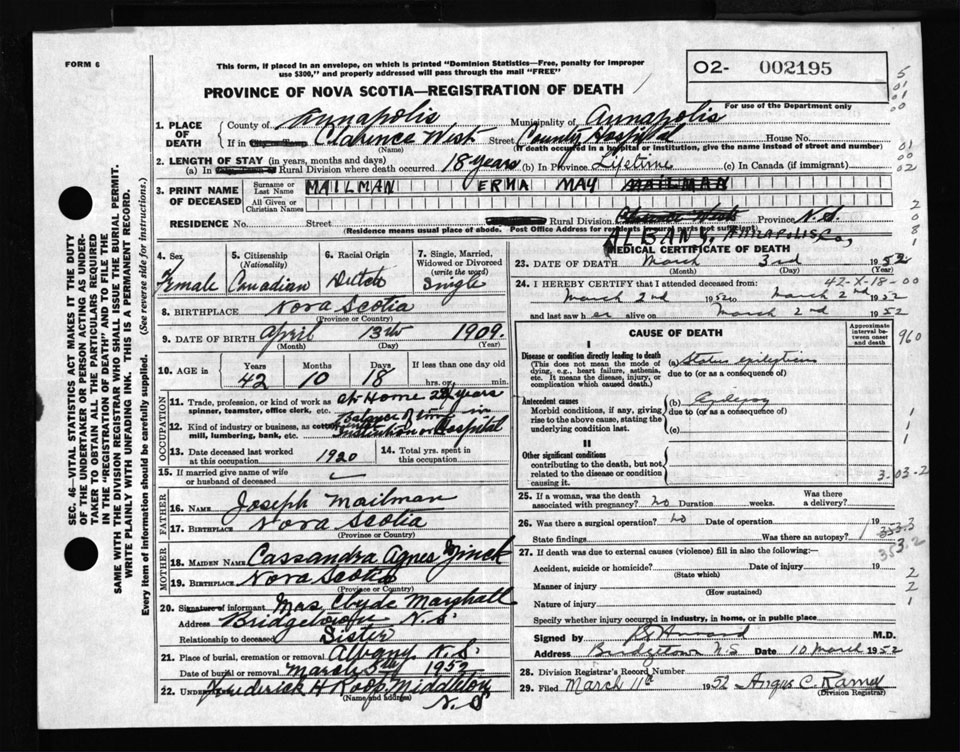 FORM 6
This form, if placed in an envelope, on which is printed "Dominion Statistics—Free, penalty for improper
use $300," and properly addressed will pass through the mail "FREE"
PROVINCE OF NOVA SCOTIA—REGISTRATION OF DEATH
02- 002195
For use of the Department only
1. PLACE OF DEATH
County of Annapolis Municipality of Annapolis
If in Clarence West Street County Hospital House No.
(Name) (If death occurred in a hospital or institution, give the name instead of street and number)
2. LENGTH OF STAY (in years, months and days)
(a) In Rural Division where death occurred 18 years (b) In Province Lifetime (c) In Canada (if immigrant)
3. PRINT NAME OF DECEASED
Surname or Last Name MAILMAN ERMA MAY MAILMAN
All Given or Christian Names
RESIDENCE No. Street Rural Division Clarence West Province N.S.
(Residence means usual place of abode. Post Office Address for residents of rural parts not sufficient)
ALBANY, ANNAPOLIS Co,
4. Sex Female
5. Citizenship (Nationality) Canadian
6. Racial Origin Dutch
7. Single, Married, Widowed or Divorced (write the word) Single
8. BIRTHPLACE Nova Scotia
(Province or Country)
9. DATE OF BIRTH April 13th 1909.
(Month) (Day) (Year)
10. AGE in Years 42 Months 10 Days 18 If less than one day old hrs. or min.
OCCUPATION
11. Trade, profession, or kind of work as spinner, teamster, office clerk, etc. at Home 24 years
12. Kind of industry or business, as cotton mill, lumbering, bank, etc. Balance of time in Institution or Hospital
13. Date deceased last worked at this occupation 1920
14. Total yrs. spent in this occupation
15. If married give name of wife or husband of deceased
FATHER
16. NAME Joseph Mailman
17. BIRTHPLACE Nova Scotia
(Province or Country)
MOTHER
18. MAIDEN NAME Cassandra Agnes Zinck
19. BIRTHPLACE Nova Scotia
(Province or Country)
20. Signature of informant Mrs Clyde Marshall
Address Bridgetown N.S.
Relationship to deceased Sister
21. Place of burial, cremation or removal Albany N.S.
Date of burial or removal March 5th 1952
22. UNDERTAKER Frederick H Roop Middleton
(Name and address) N.S
MEDICAL CERTIFICATE OF DEATH
23. DATE OF DEATH March 3rd 1952
(Month) (Day) (Year)
24. I HEREBY CERTIFY that I attended deceased from: 42-X-18-00
March 2nd 1952 to March 2nd 1952
and last saw her alive on March 2nd 1952
CAUSE OF DEATH
Approximate interval between onset and death
I
Disease or condition directly leading to death (a) Status epilepticus
(This does not mean the mode of dying, e.g., heart failure, asthenia, etc. It means the disease, injury, or complication which caused death.)
due to (or as a consequence of)
Antecedent causes (b) Epilepsy
Morbid conditions, if any, giving rise to the above cause, stating the underlying condition last.
due to (or as a consequence of)
(c)
II
Other significant conditions
contributing to the death, but not related to the disease or condition causing it
25. If a woman, was the death associated with pregnancy? No Duration weeks. Was there a delivery?
26. Was there a surgical operation? No Date of operation 19
State findings Was there an autopsy?
27. If death was due to external causes (violence) fill in also the following:—
Accident, suicide or homicide? Date of injury 19
(State which)
Manner of injury
(How sustained)
Nature of injury
Specify whether injury occurred in industry, in home, or in public place
Signed by M.D.
Address Bridgetown N S Date 10 March 1952
28. Division Registrar's Record Number
29. Filed March 11th 1952 Angus C. Ramey
(Division Registrar)
960
3-03-2
353.3
353.2
SEC. 46—VITAL STATISTICS ACT MAKES IT THE DUTY
OF THE UNDERTAKER OR PERSON ACTING AS UNDER-
TAKER TO OBTAIN ALL THE PARTICULARS REQUIRED
IN THE "REGISTRATION OF DEATH" AND TO FILE THE
SAME WITH THE DIVISION REGISTRAR WHO SHALL ISSUE THE BURIAL PERMIT.
WRITE PLAINLY WITH UNFADING INK. THIS IS A PERMANENT RECORD.
Every item of information should be carefully supplied. (See reverse side for instructions.)